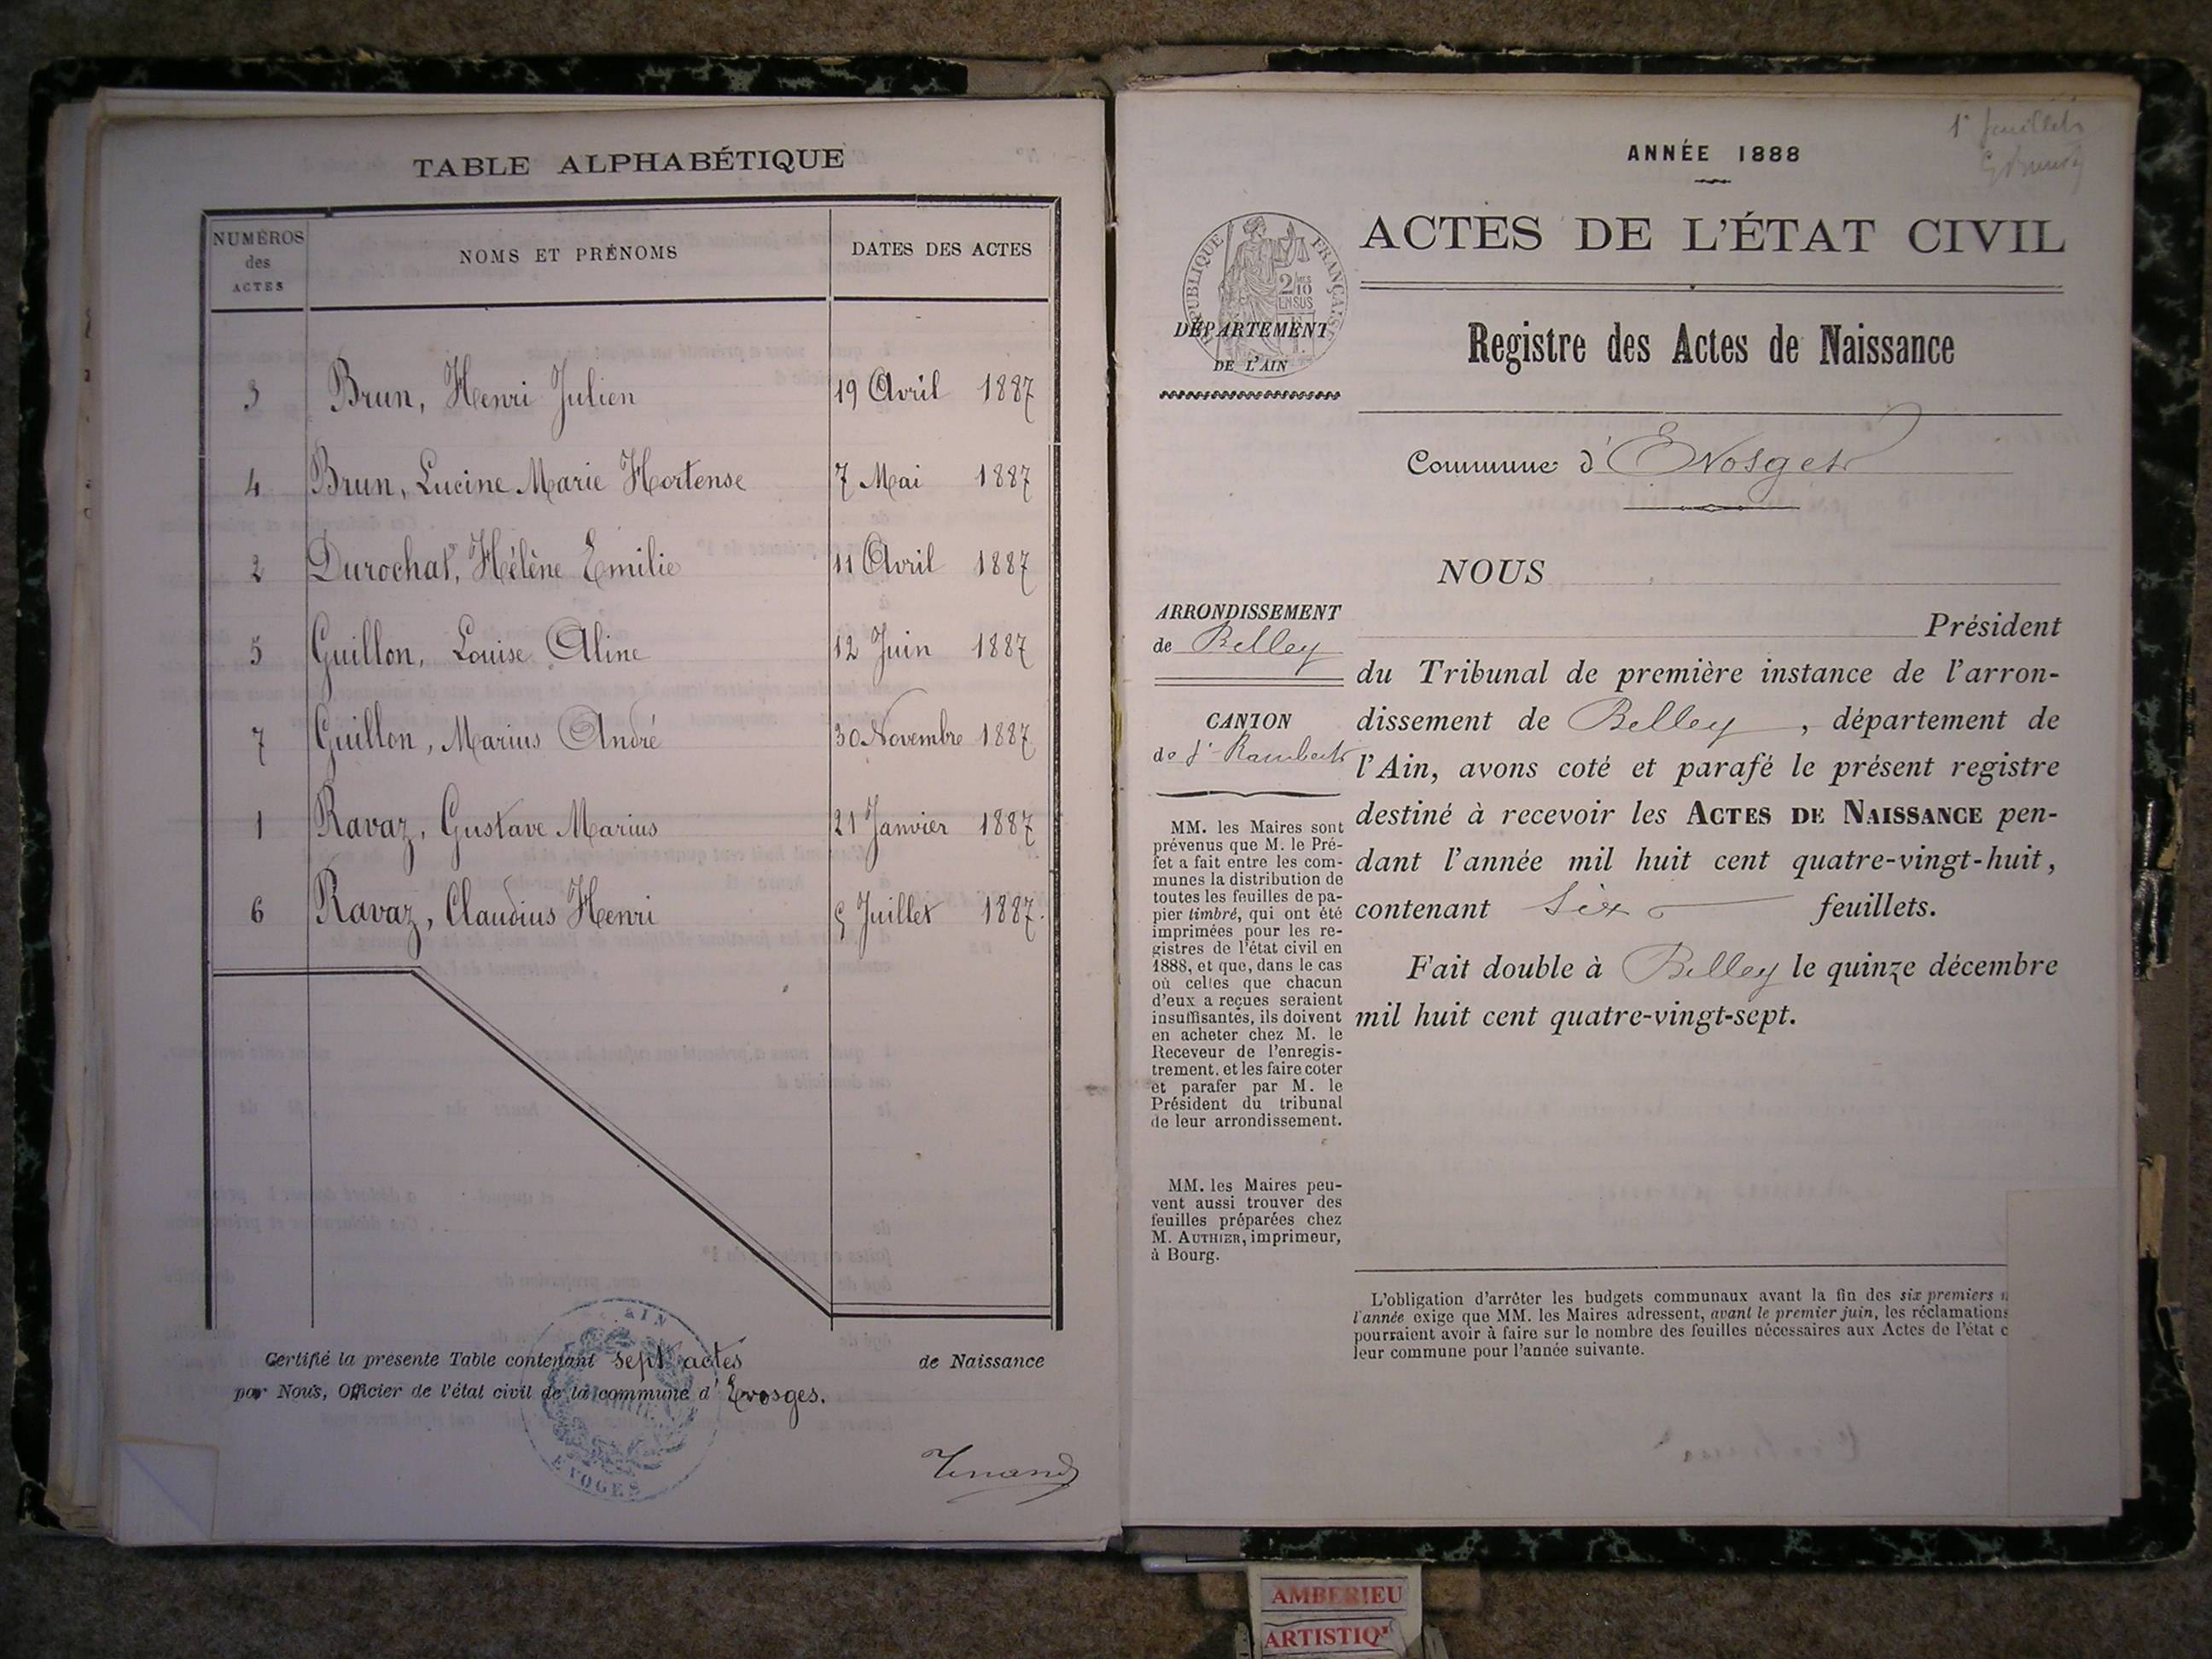 TABLE ALPHABÉTIQUE
NUMÉROS des ACTES NOMS ET PRÉNOMS DATES DES ACTES
3 Brun, Henri Julien 19 Avril 1887
4 Brun, Lucine Marie Hortense 7 Mai 1887
2 Durochat, Hélène Emilie 11 Avril 1887
5 Guillon, Louise Aline 12 Juin 1887
7 Guillon, Marius André 30 Novembre 1887
1 Ravaz, Gustave Marius 21 Janvier 1887
6 Ravaz, Claudius Henri 5 Juillet 1887.
Certifié la présente Table contenant sept actes de Naissance
par Nous, Officier de l'état civil de la commune d'Evosges.
AIN
EVOGES
1er feuillet
ANNÉE 1888
ACTES DE L'ÉTAT CIVIL
RÉPUBLIQUE FRANÇAISE
2/10 EN SUS
DÉPARTEMENT
DE L'AIN
Registre des Actes de Naissance
Commune d'Evosges
NOUS
Président
ARRONDISSEMENT
de Belley
CANTON
de St Rambert
du Tribunal de première instance de l'arron-
dissement de Belley, département de
l'Ain, avons coté et parafé le présent registre
destiné à recevoir les ACTES DE NAISSANCE pen-
dant l'année mil huit cent quatre-vingt-huit,
contenant six feuillets.
Fait double à Belley le quinze décembre
mil huit cent quatre-vingt-sept.
MM. les Maires sont
prévenus que M. le Pré-
fet a fait entre les com-
munes la distribution de
toutes les feuilles de pa-
pier timbré, qui ont été
imprimées pour les re-
gistres de l'état civil en
1888, et que, dans le cas
où celles que chacun
d'eux a reçues seraient
insuffisantes, ils doivent
en acheter chez M. le
Receveur de l'enregis-
trement, et les faire coter
et parafer par M. le
Président du tribunal
de leur arrondissement.
MM. les Maires peu-
vent aussi trouver des
feuilles préparées chez
M. AUTHIER, imprimeur,
à Bourg.
L'obligation d'arrêter les budgets communaux avant la fin des six premiers
l'année exige que MM. les Maires adressent, avant le premier juin, les réclamations
pourraient avoir à faire sur le nombre des feuilles nécessaires aux Actes de l'état c
leur commune pour l'année suivante.
AMBERIEU
ARTISTIQ